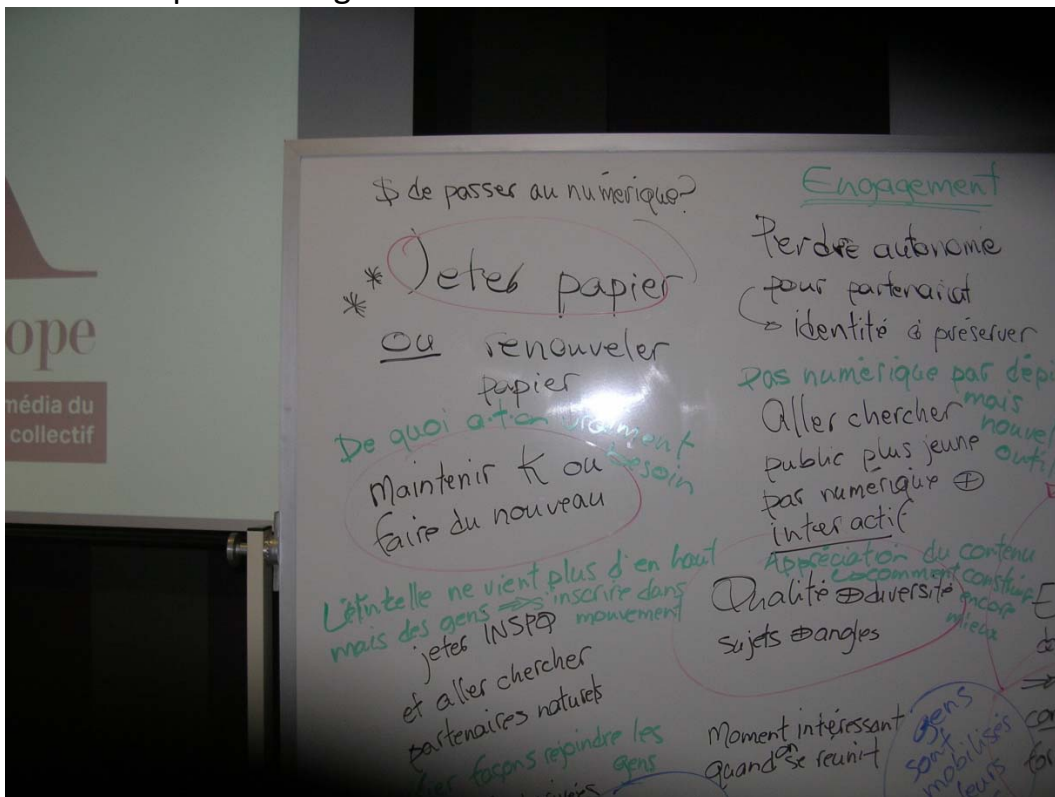 ope
média du
collectif
$ de passer au numérique?
** Jeter papier
ou renouveler
papier
De quoi a-t-on vraiment
besoin
Maintenir K ou
faire du nouveau
L'étincelle ne vient plus d'en haut
mais des gens => s'inscrire dans
mouvement
jeter INSPQ
et aller chercher
partenaires naturels
façons rejoindre les
gens
Engagement
Perdre autonomie
pour partenariat
identité à préserver
Pas numérique par dépi
mais
nouvel
outil
Aller chercher
public plus jeune
par numérique ⊕
interactif
Appréciation du contenu
comment construire
encore
mieux
Qualité ⊕ diversité
sujets ⊕ angles
Moment intéressant
quand on se réunit
gens
sont
mobilisés
leurs